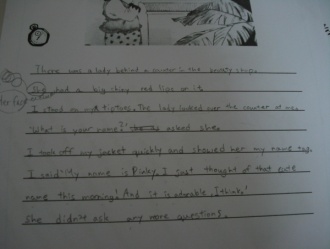 There was a lady behind a counter in the beauty shop.
She had a big shiny red lips on it
I stood on my tiptoes. The lady looked over the counter at me.
"What is your name?" asked she.
I took off my jacket quickly and showed her my name tag.
I said "My name is Pinky. I just thought of that cute
name this morning! And it is adorable, I think!
She didn't ask any more questions.